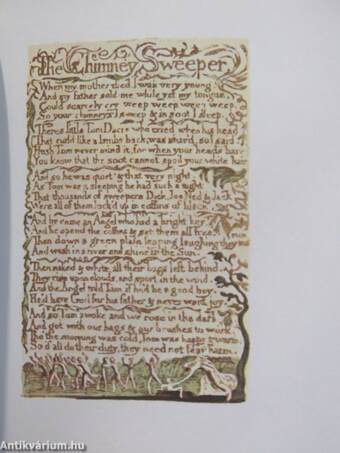 The Chimney Sweeper
When my mother died I was very young
And my father sold me while yet my tongue
Could scarcely cry weep weep weep weep
So your chimneys I sweep & in soot I sleep.
Theres little Tom Dacre who cried when his head
That curl'd like a lambs back, was shav'd, so I said
Hush Tom never mind it, for when your head's bare
You know that the soot cannot spoil your white hair
And so he was quiet & that very night
As Tom was a sleeping he had such a sight
That thousands of sweepers Dick, Joe Ned & Jack
Were all of them lock'd up in coffins of black
And by came an Angel who had a bright key
And he open'd the coffins & set them all free
Then down a green plain leaping laughing they run
And wash in a river and shine in the Sun.
Then naked & white, all their bags left behind
They rise upon clouds, and sport in the wind
And the Angel told Tom if he'd be a good boy
He'd have God for his father & never want joy
And so Tom awoke and we rose in the dark
And got with our bags & our brushes to work
Tho' the morning was cold, Tom was happy & warm
So if all do their duty, they need not fear harm.
Antikvárium.hu